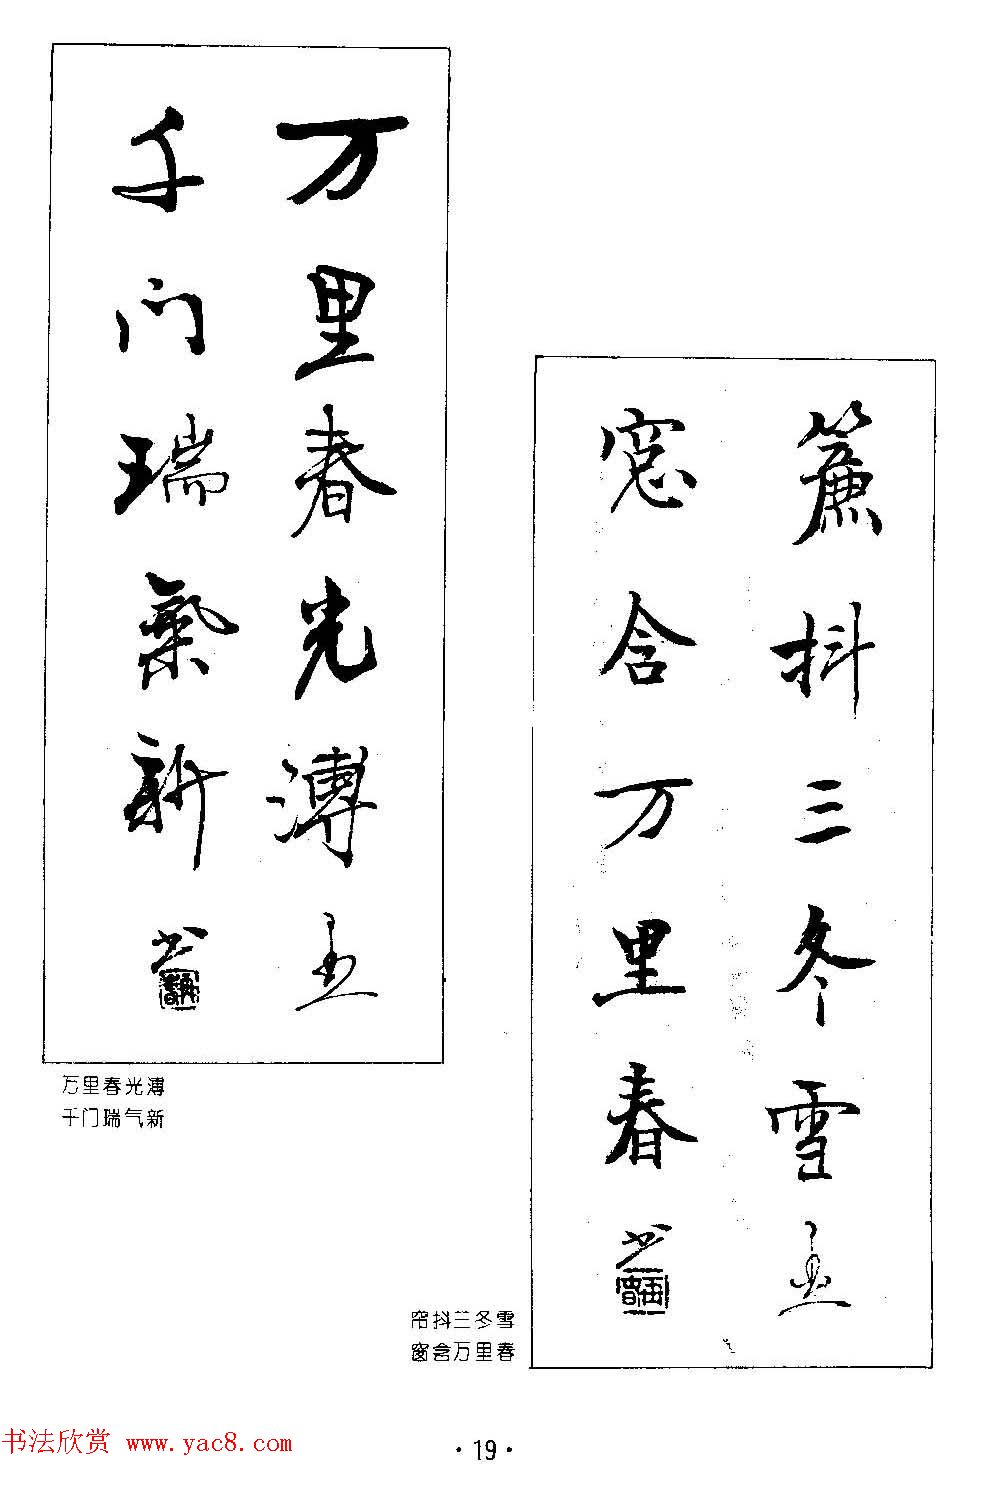 万里春光溥
千门瑞氣新
万里春光溥
千门瑞气新
簾抖三冬雪
窓含万里春
帘抖三冬雪
窗含万里春
书法欣赏 www.yac8.com
·19·